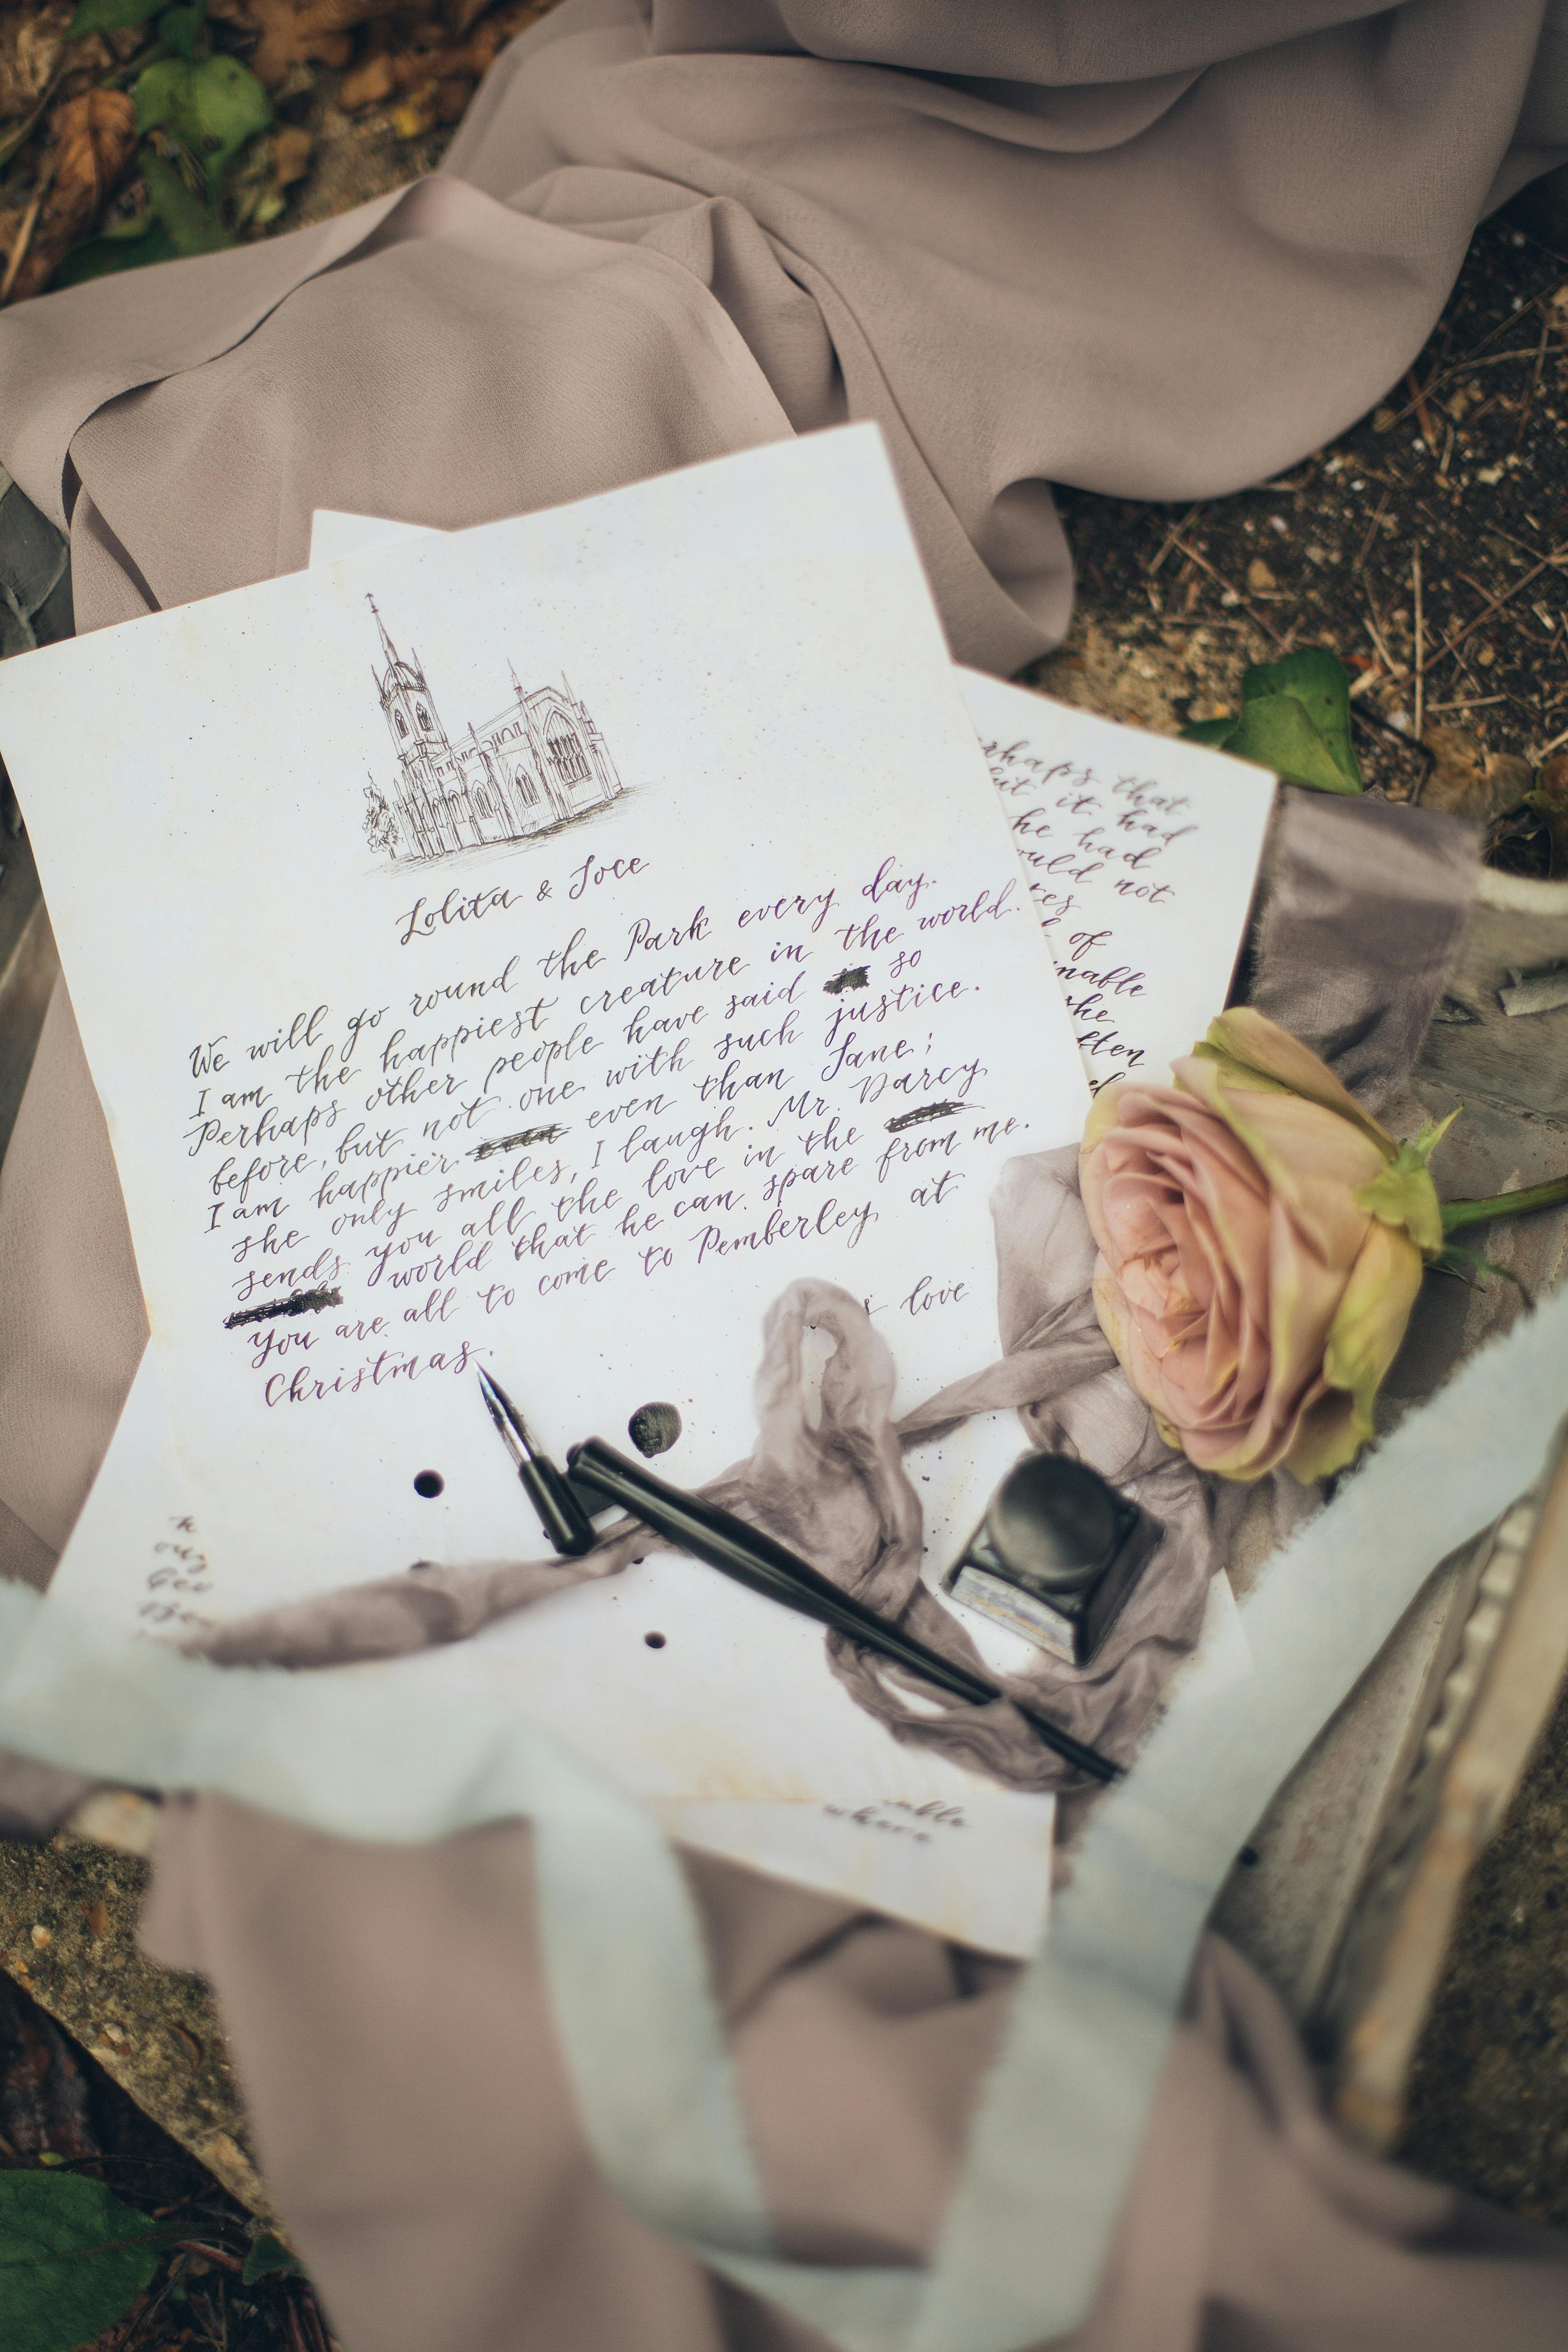 Lolita & Joce
We will go round the Park every day.
I am the happiest creature in the world.
Perhaps other people have said so
before, but not one with such justice.
I am happier even even than Jane;
she only smiles, I laugh. Mr. Darcy
sends you all the love in the
world that he can spare from me.
You are all to come to Pemberley at
Christmas.
love
that
but it had
he had
not
of
she
often
where